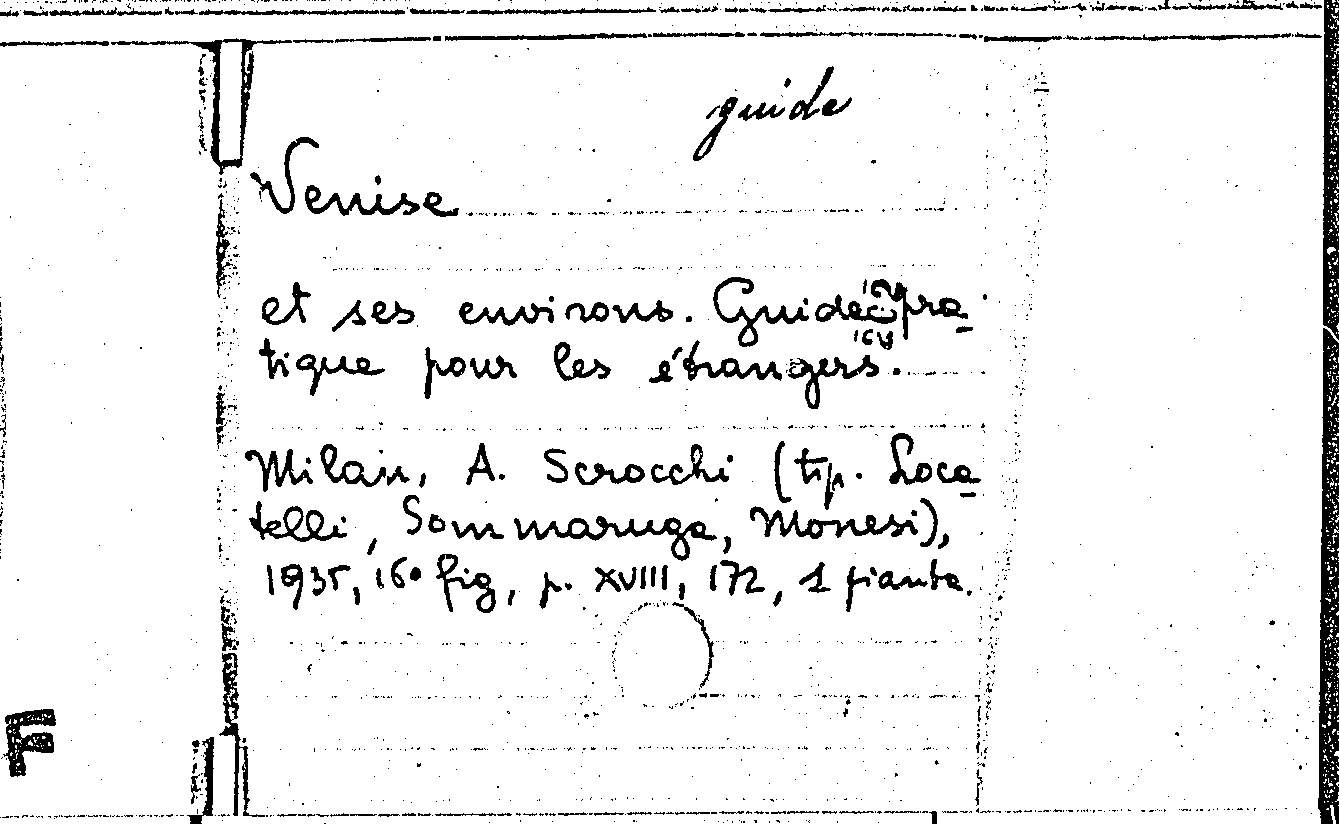 guide
Venise
et ses environs. Guide pra-
tique pour les étrangers.
Milan, A. Scrocchi (tip. Loca-
telli, Sommaruga, Monesi),
1935, 16° fig, p. XVIII, 172, 1 pianta.
F